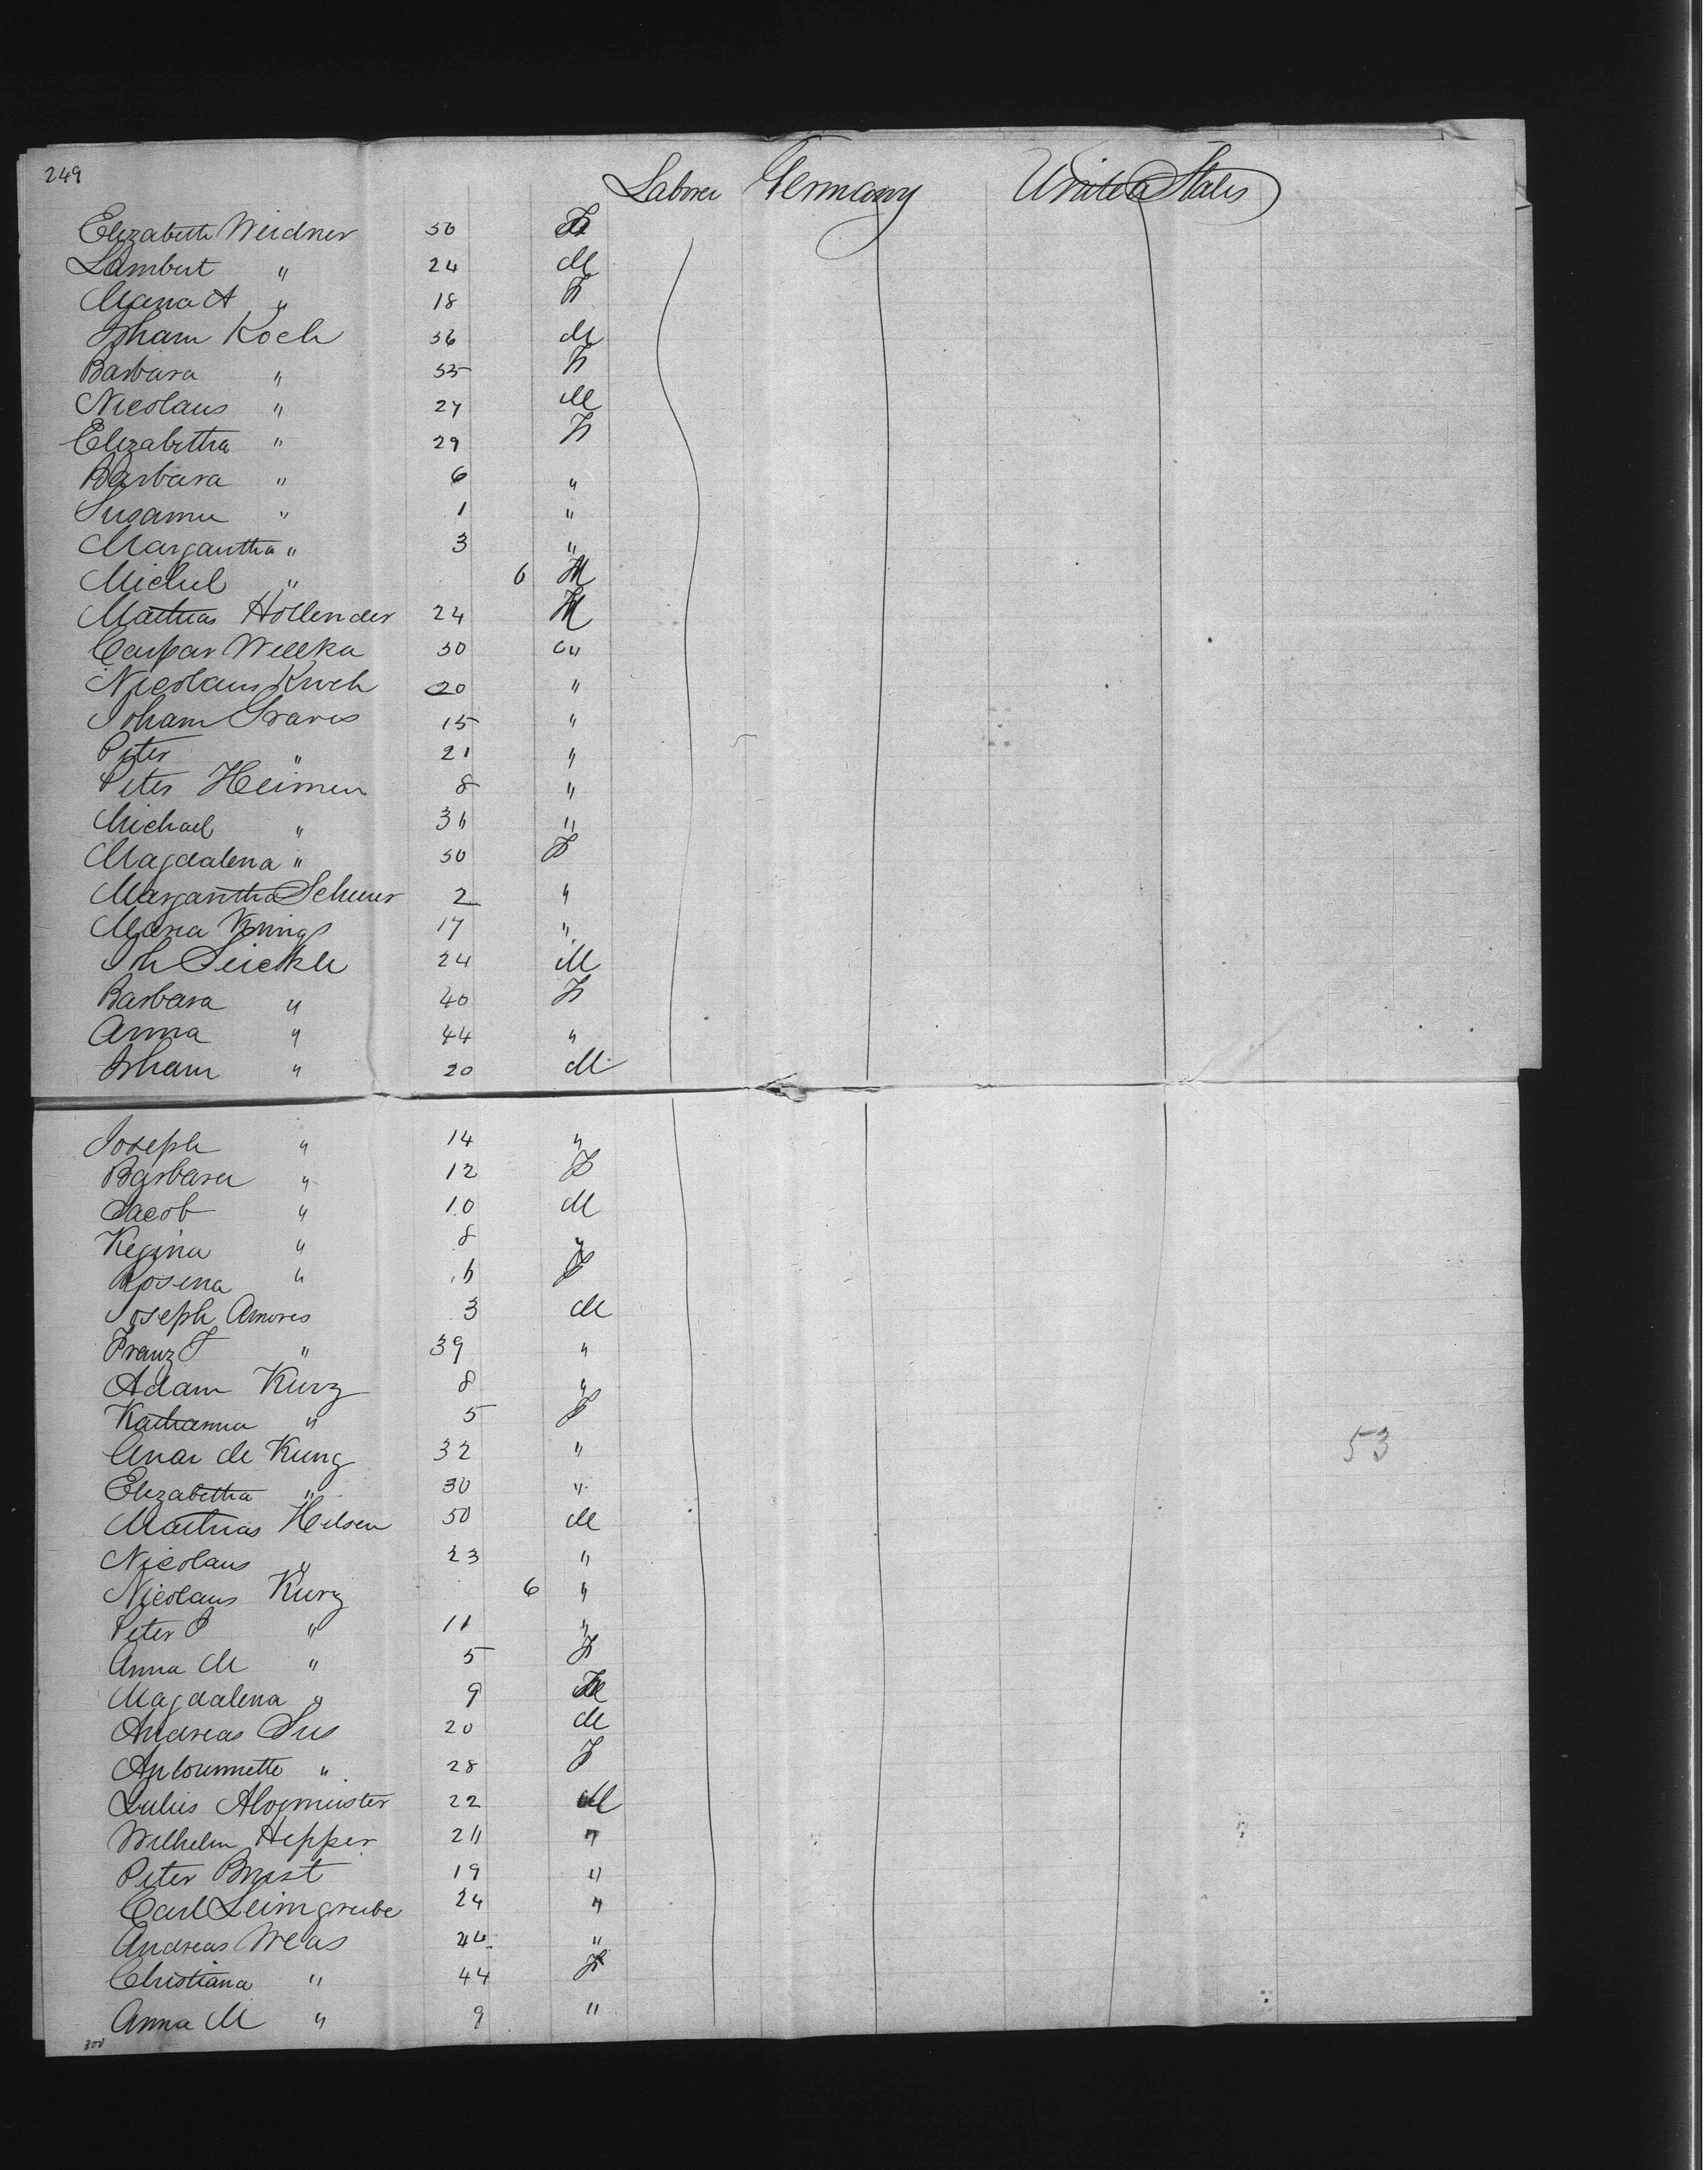 249
Laborer Germany United States
Elizabeth Weidner 50 F
Lambert " 24 M
Maria A " 18 F
Joham Koch 36 M
Barbara " 35 F
Nicolaus " 27 M
Elizabetha " 29 F
Barbara " 6 "
Susanna " 1 "
Margaretha " 3 "
Michel " 6 M
Mathias Hollender 24 M
Caspar Wellka 30 "
Nicolaus 20 "
Joham Graves 15 "
Peter " 21 "
Peter Heimen 8 "
Michael " "
Magdalena " 50 F
Margaretha 2 "
Maria 17 "
Joh Seickle 24 M
Barbara " 40 F
Anna " 44 "
Joham " 20 M
Joseph " 14 "
Barbara " 12 F
Jacob " 10 M
Regina " 8 "
Rosena " 6 F
Joseph Amores 3 M
Franz J " 39 "
Adam Kurz 8 "
Katharina " 5 F
de Kung 32 "
Elizabetha " 30 "
53
Mathias Helsen 50 M
Nicolaus " 23 "
Nicolaus Kurz 6 "
Peter J " 11 "
Anna M " 5 F
Magdalena " 9 F
Andreas Sus 20 M
" 28 F
Julius 22 M
Wilhelm Hepper "
Peter Brust 19 "
Carl Leimgrube 24 "
Andreas Weas "
Christiana " 44 F
Anna M " 9 "
300